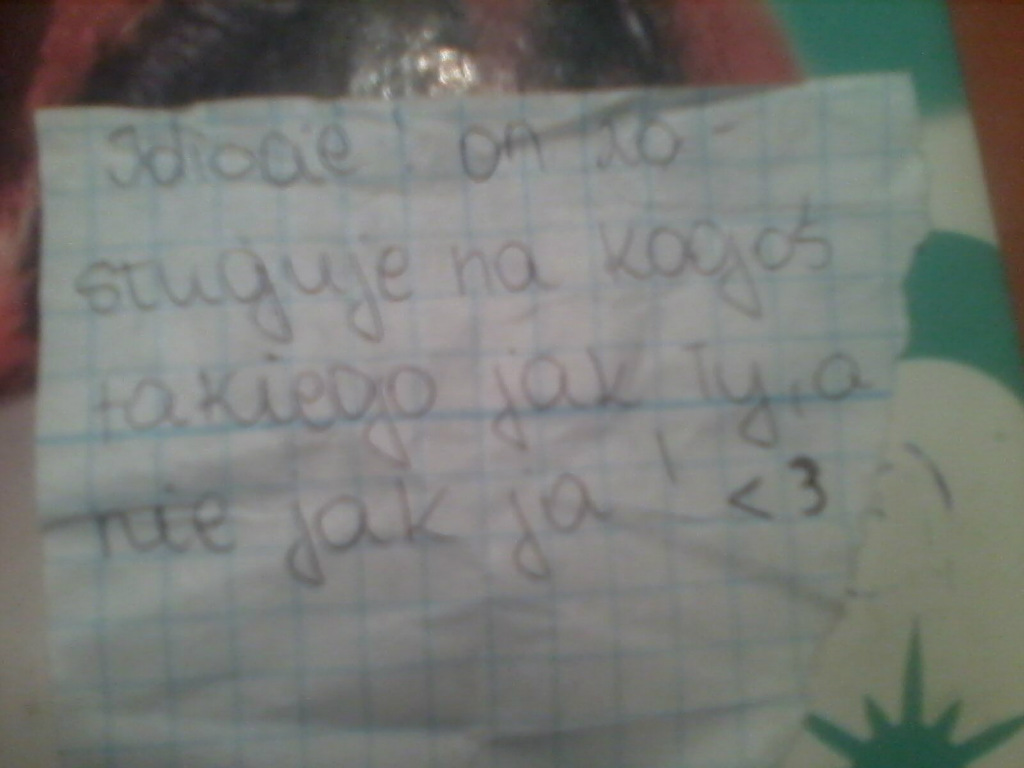 Idiocie! on za-
sługuje na kogoś
takiego jak Ty, a
nie jak ja! <3 :)